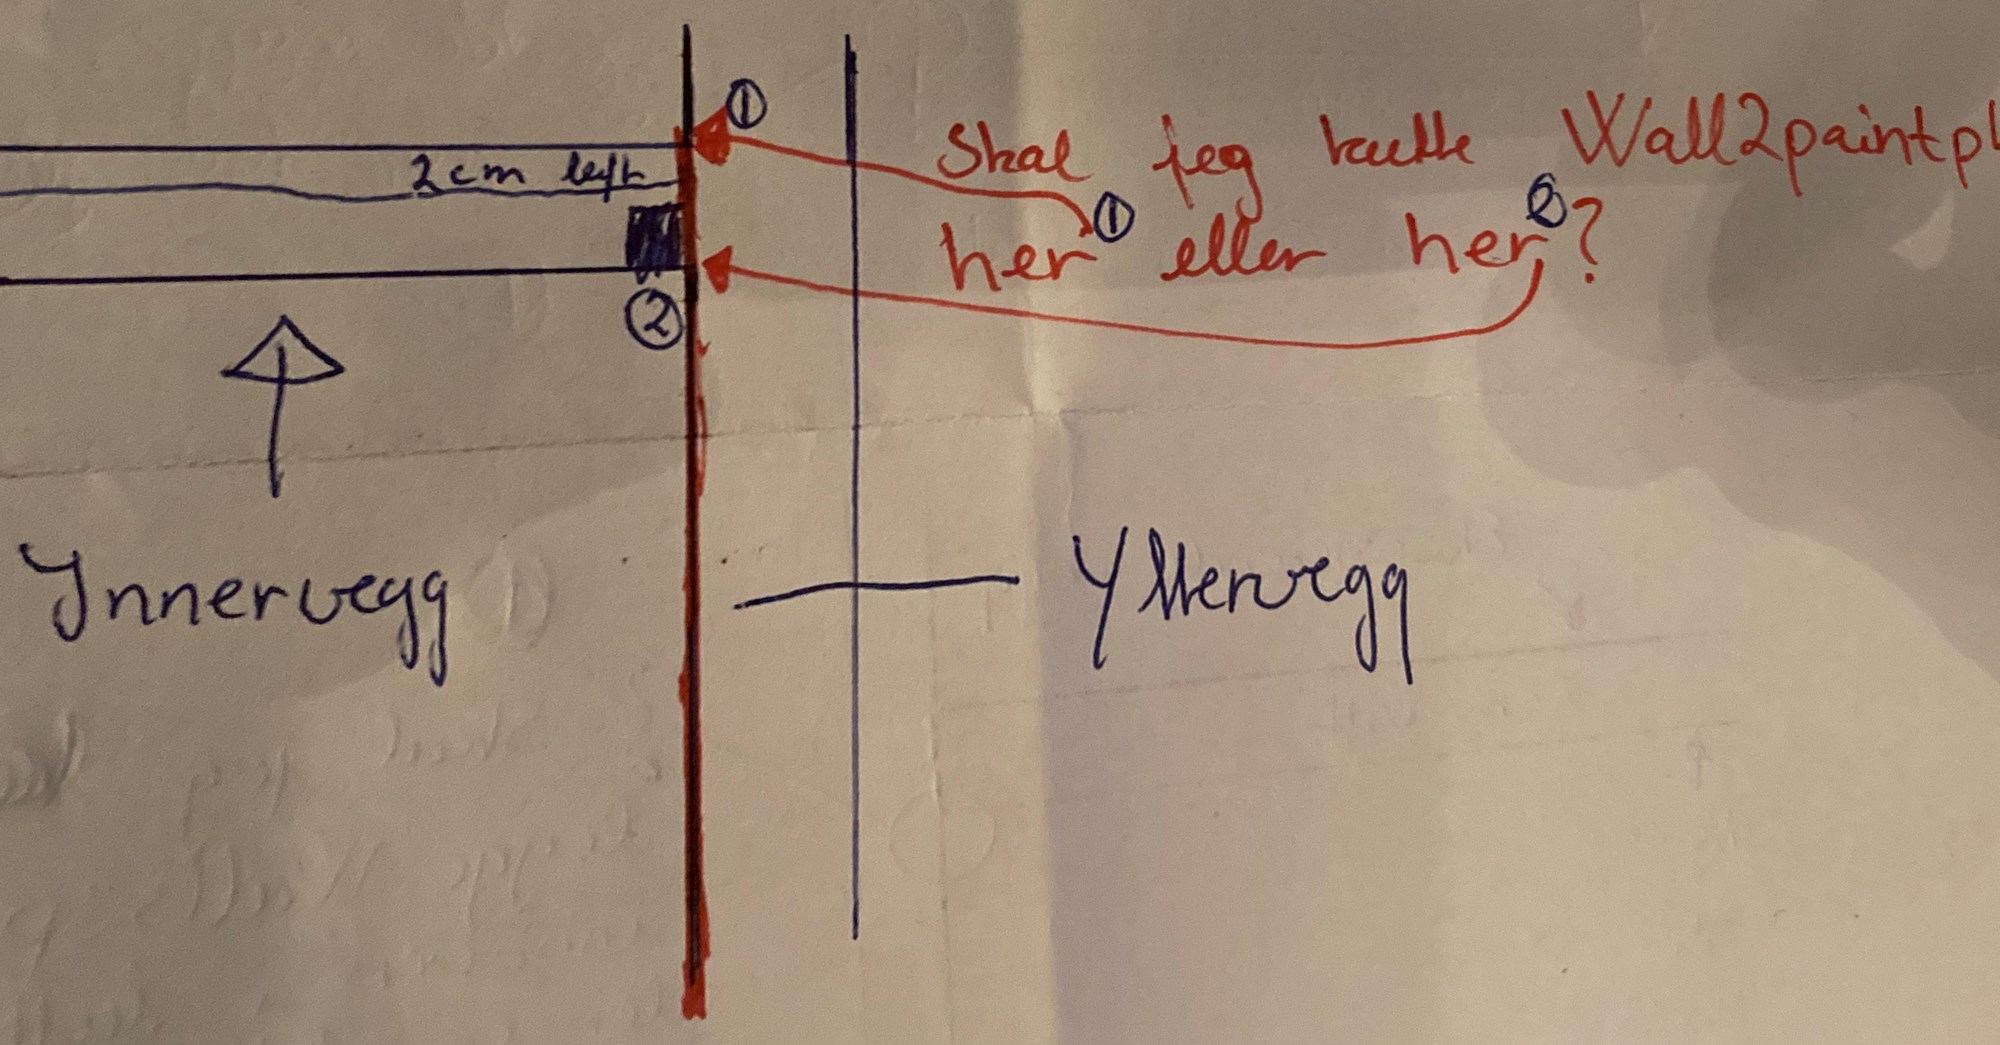 ①
Skal jeg kutte Wall2paintpl
2 cm left
her ① eller her ② ?
②
Innervegg
Yttervegg